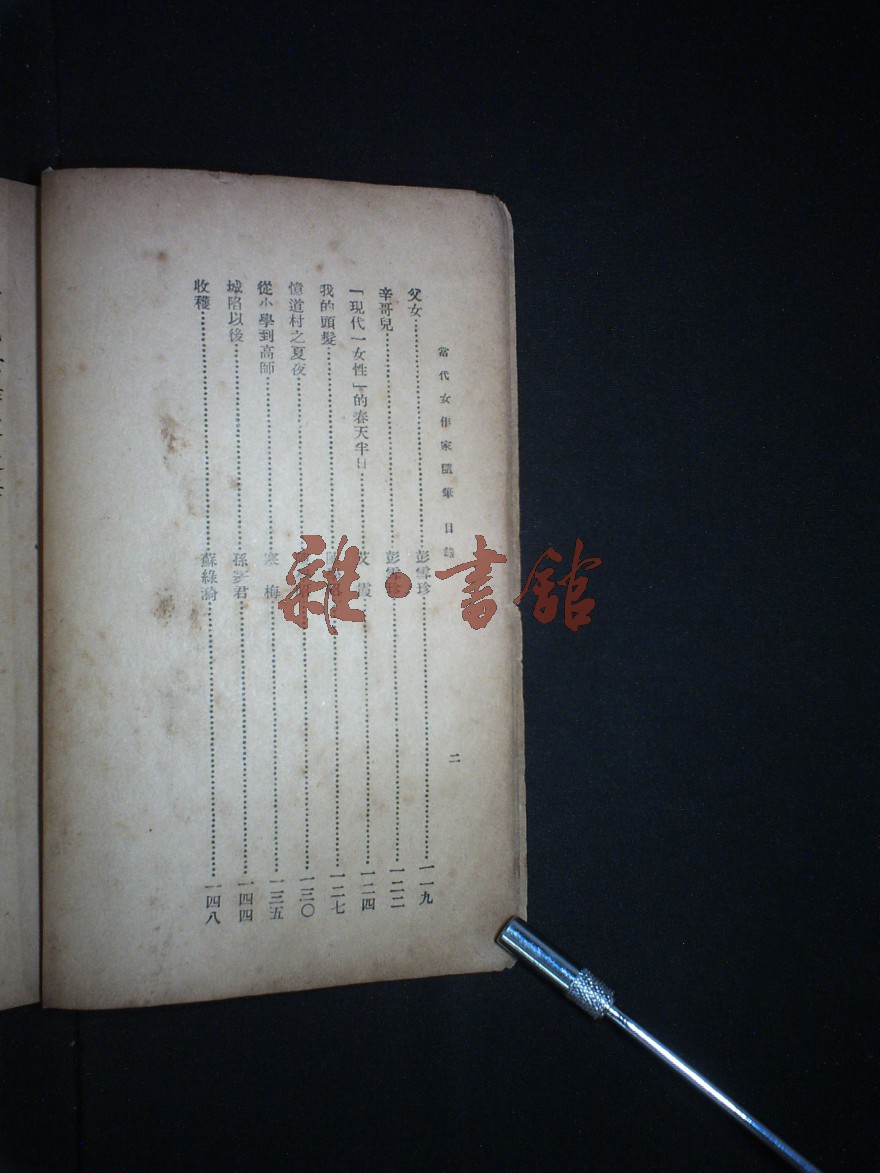 當代女作家隨筆 目錄
二
父女……彭雪珍……一一九
辛哥兒……彭雪珍……一二二
「現代一女性」的春天半日……艾霞……一二四
我的頭髮……一二七
憶道村之夏夜……一三〇
從小學到高師……寒梅……一三五
城陷以後……孫君……一四四
收穫……蘇綠漪……一四八
雜·書館